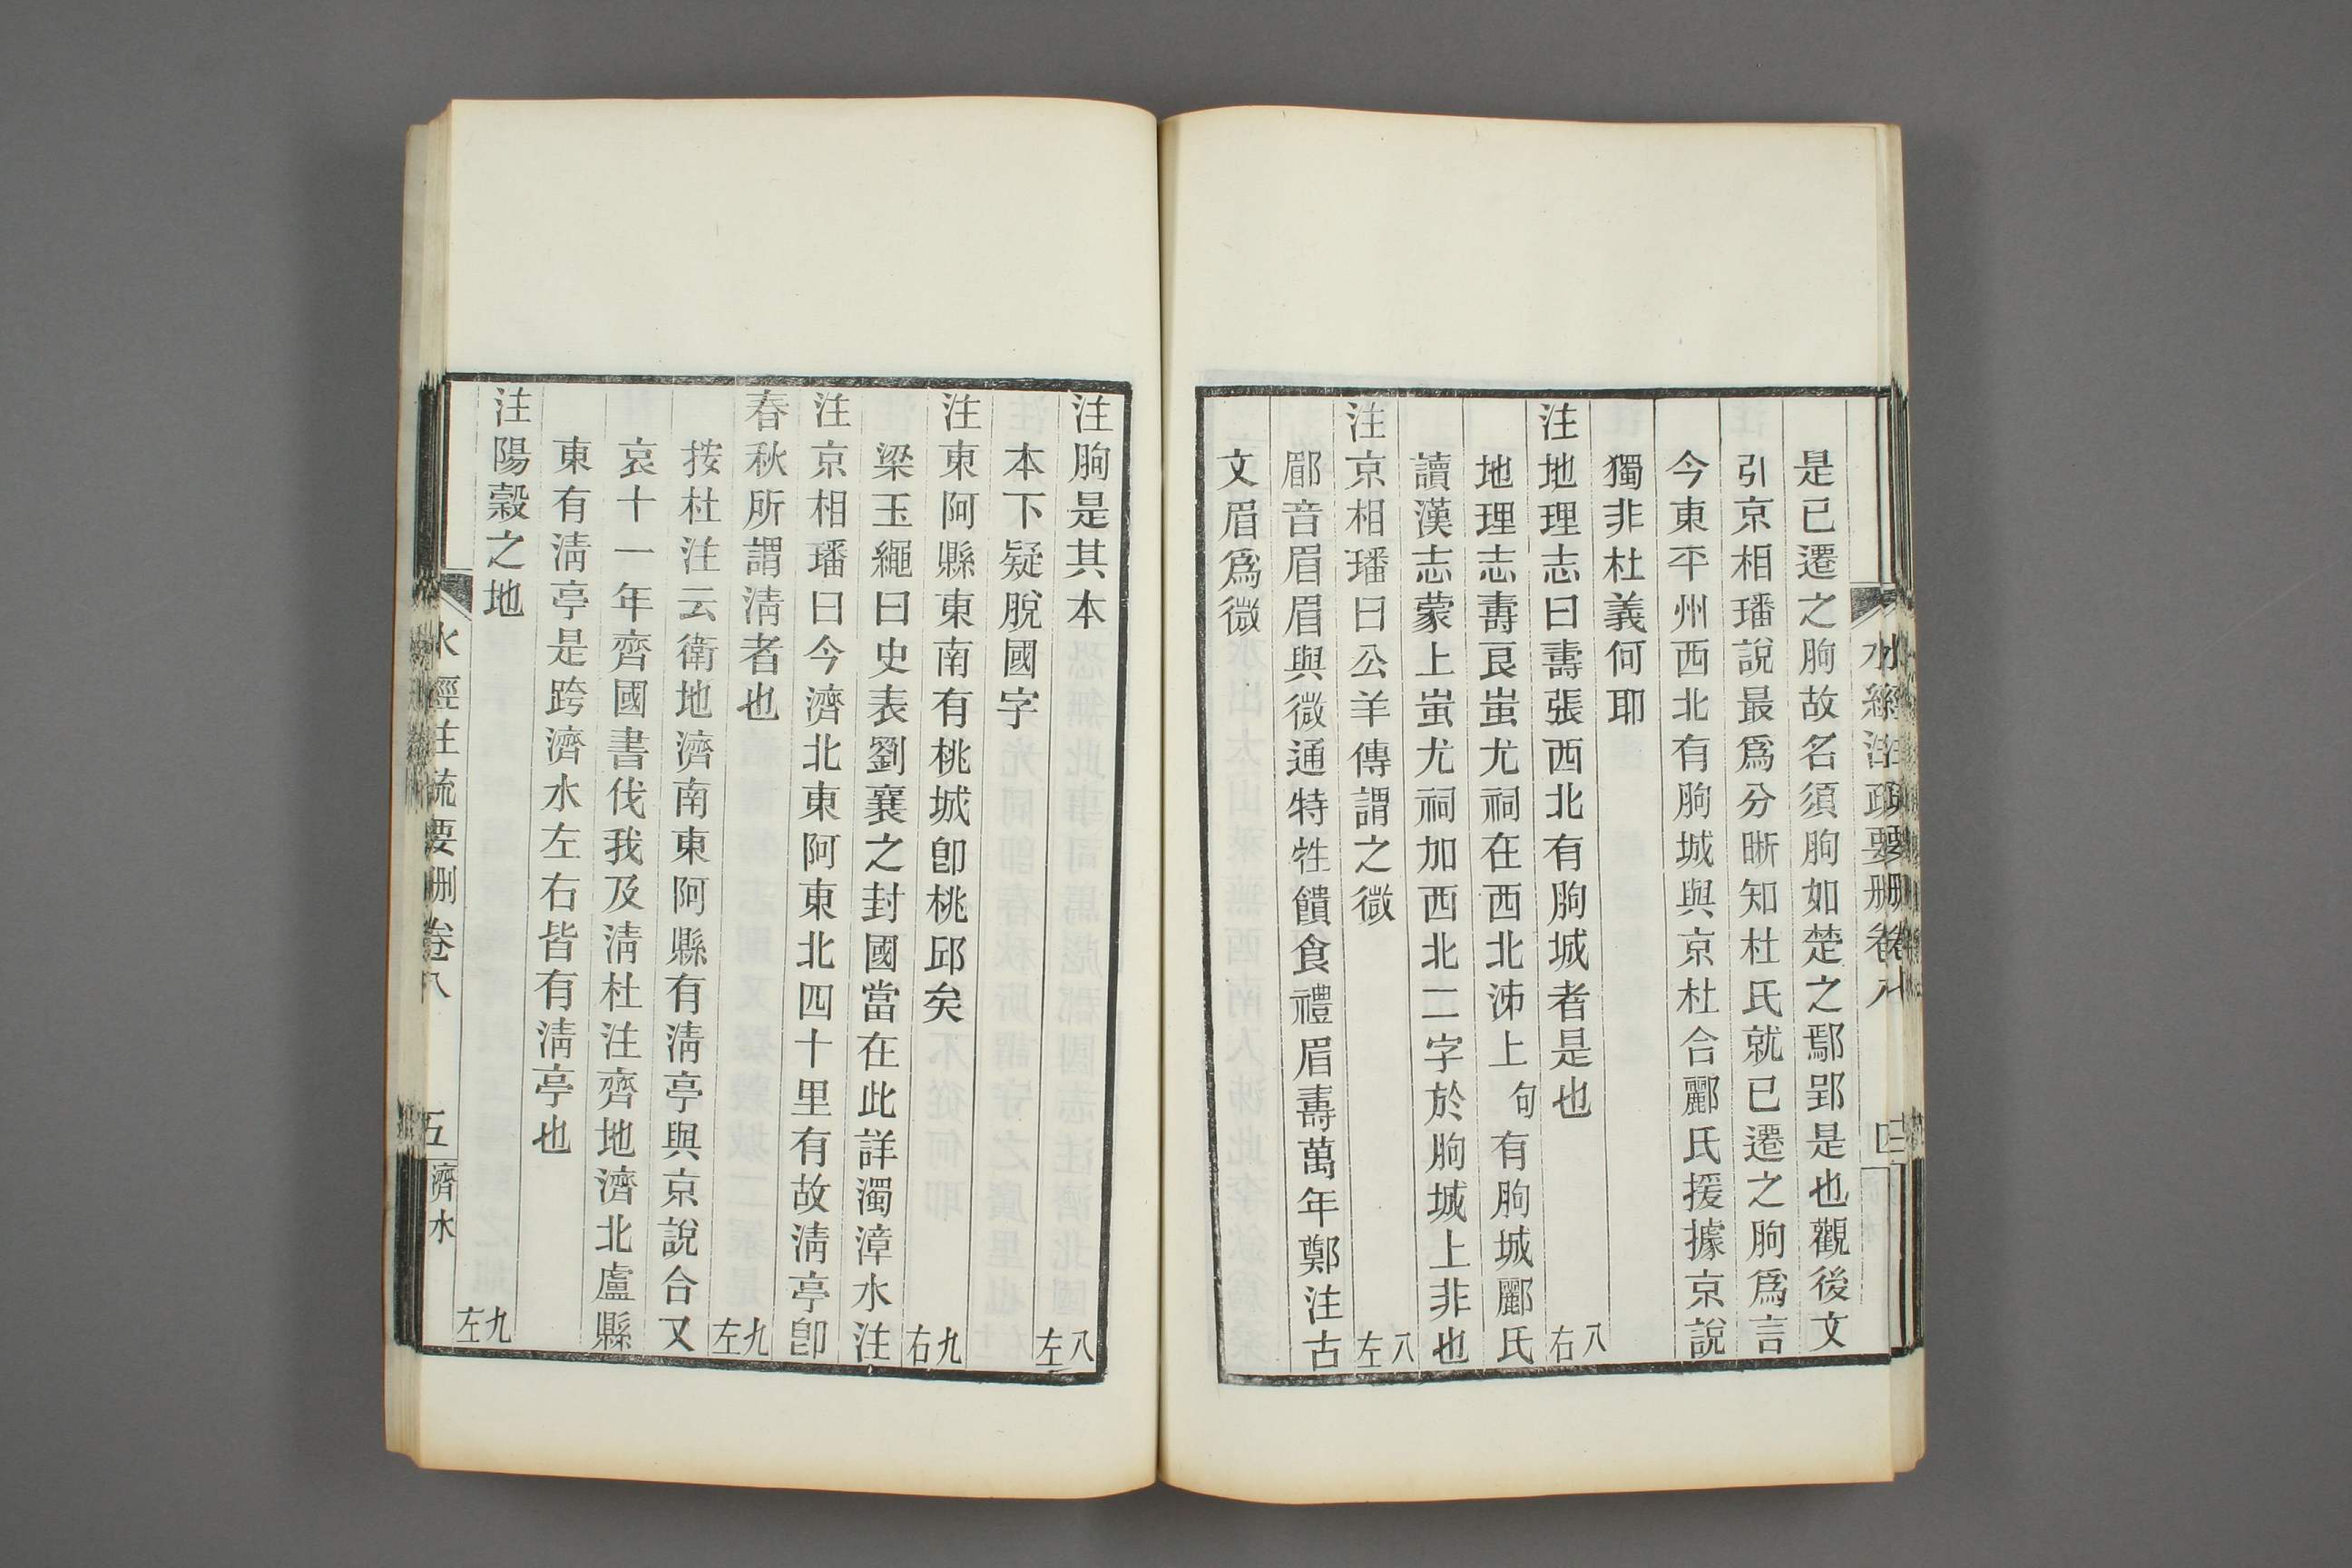 是已遷之朐故名須朐如楚之鄢郢是也觀後文
引京相璠說最爲分晰知杜氏就已遷之朐爲言
今東平州西北有朐城與京杜合酈氏援據京說
獨非杜義何耶
注地理志曰壽張西北有朐城者是也 八右
地理志壽良蚩尤祠在西北泲上句有朐城酈氏
讀漢志蒙上蚩尤祠加西北二字於朐城上非也
注京相璠曰公羊傳謂之微 八左
郿音眉眉與微通特牲饋食禮眉壽萬年鄭注古
文眉爲微
注朐是其本 八左
本下疑脫國字
注東阿縣東南有桃城卽桃邱矣 九右
梁玉繩曰史表劉襄之封國當在此詳濁漳水注
注京相璠曰今濟北東阿東北四十里有故淸亭卽
春秋所謂淸者也 九左
按杜注云衛地濟南東阿縣有淸亭與京說合又
哀十一年齊國書伐我及淸杜注齊地濟北盧縣
東有淸亭是跨濟水左右皆有淸亭也
注陽穀之地 九左
水經注疏要刪卷八 五 濟水